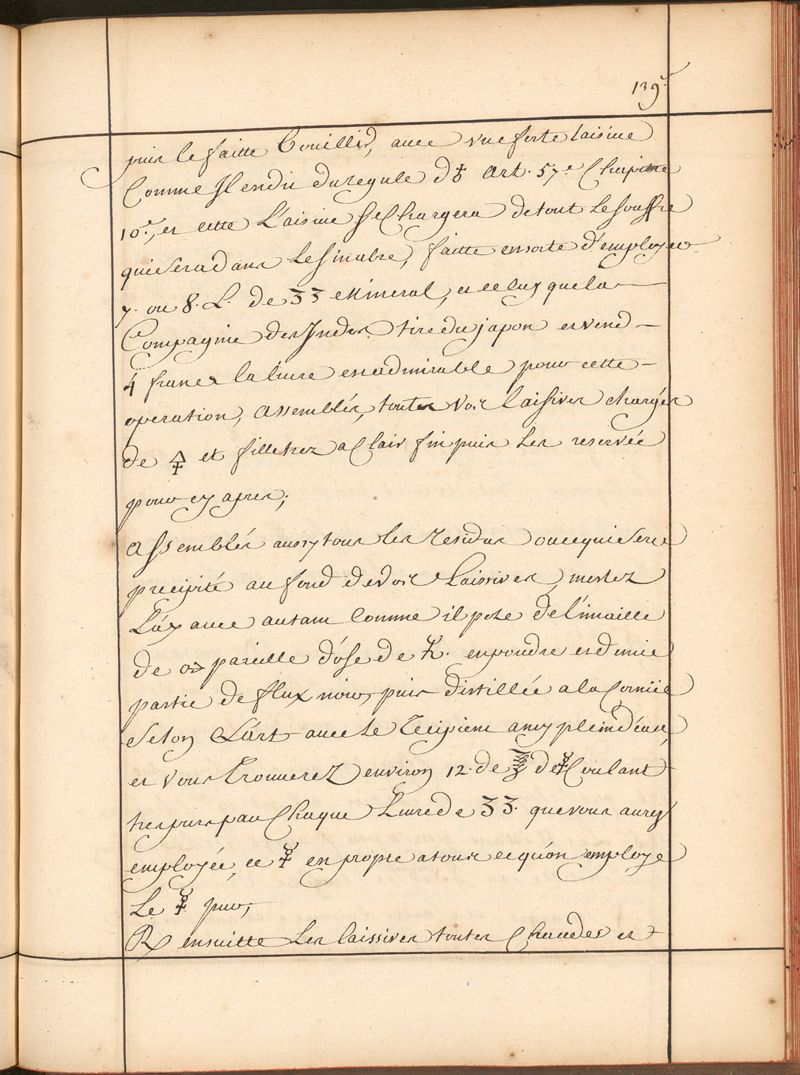 139.
puis le faitte Bouillir, avec une forte laisive
Comme Il en du Regule d♁ Art. 57.e Chapitre
10.e, et cette Laisive Se Chargera de tout le souffre
qui sera dans le Sinabre, faitte en sorte d'employer
7. ou 8. L. de 33 Mineral, et celuy que la
Compagnie des Indes tire du japon et vend
4 francs la livre est admirable pour cette
operation, Assemblés, toutes vos laisives chargés
de 🜍 et filltrez a Clair fin puis les reservée
pour cy apres;
Assemblés aussy tous les Residus ou ce qui sera
precipité au fond de vos Laissives, meslez
Lax avec autant Comme il pese de Limaille
de ♂ pareille dose de de ♄. en poudre et demie
partie de flux noir, puis distillée a la Cornüe
selon Lart avec le Recipient a moy plein d'eau,
et vous trouverez environ 12. de ℥ de ☿ Coulant
tres pur par Chaque Livre de 33. que vous aurez
employée, ce ☿ en propre a tout ce qu'on employe
Le ☿ pur,
R ensuitte les laissives toutes Chaudes et